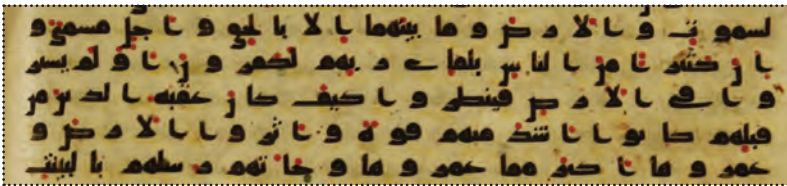 لسموت والارض وما بينهما الا بالحق واجل مسمى و
ان كثيرا من الناس بلقاى ربهم لكفرون اولم يسير
وا فى الارض فينظروا كيف كان عقبه الذين من
قبلهم كانوا اشد منهم قوة واثاروا الارض و
عمروها اكثر مما عمروها وجاتهم رسلهم بالبينت